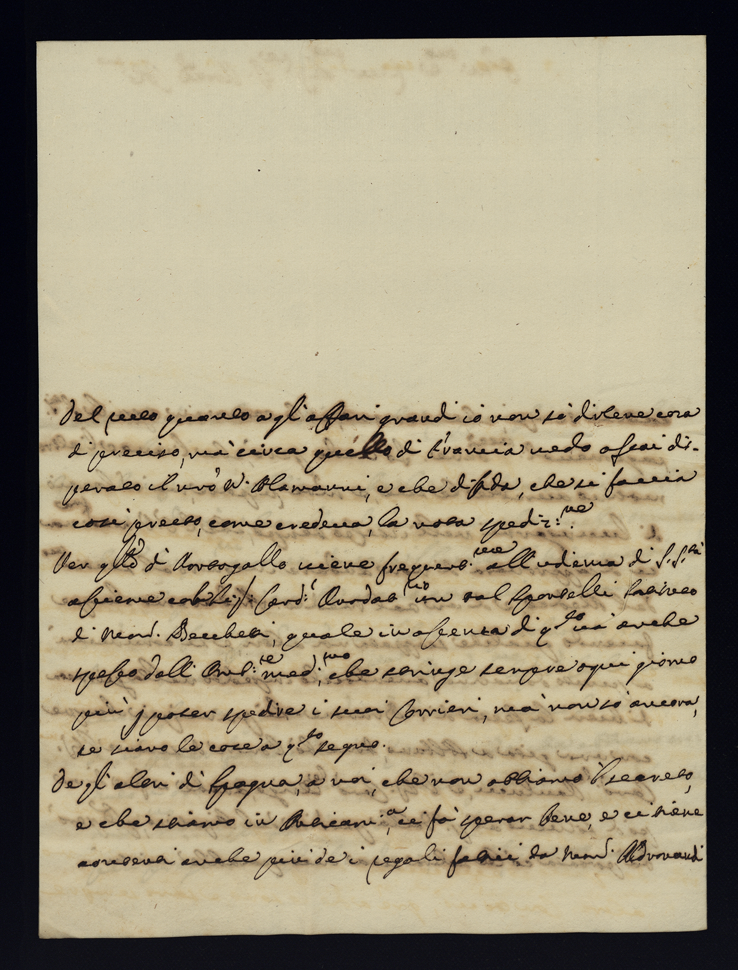 Del resto quanto a gl'affari grandi io non sò dirlene cosa
di preciso, mà circa quello di Francia vedo assai di-
sperato il nrô Alamanni, e che diffida, che si faccia
così presto, come credeva, la nota spediz:ne
Per qllo di Portogallo viene frequent.me all'udienza di S. S.tà
assieme col Sig: Card.l un tal Sponselli
di Mons.r Becchetti, quale in assenza di q.sto và anche
spesso dall' Amb:re med:mo che stringe sempre ogni giorno
più p poter spedire i suoi Corrieri, mà non sò ancora,
se siano le cose a q.sto segno.
De gl'altri di Spagna, a noi, che non abbiamo il secreto,
e che stiamo in ci fà sperar bene, e ci tiene
contenti anche più de i regali fattici da Mons.r Aldrovandi